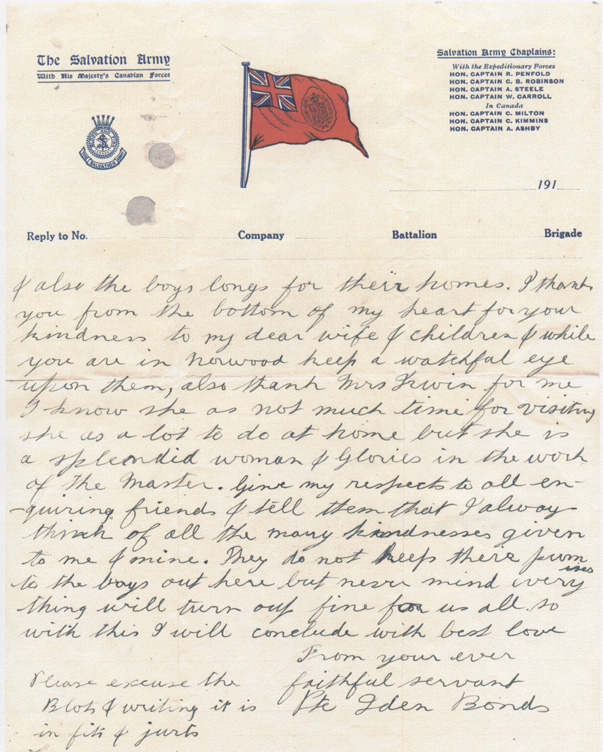 The Salvation Army
With His Majesty's Canadian Forces
Salvation Army Chaplains:
With the Expeditionary Forces
HON. CAPTAIN R. PENFOLD
HON. CAPTAIN C. B. ROBINSON
HON. CAPTAIN A. STEELE
HON. CAPTAIN W. CARROLL
In Canada
HON. CAPTAIN C. MILTON
HON. CAPTAIN C. KIMMINS
HON. CAPTAIN A. ASHBY
191
Reply to No. Company Battalion Brigade
& also the boys longs for their homes. I thank
you from the bottom of my heart for your
kindness to my dear wife & children & while
you are in Norwood keep a watchful eye
upon them, also thank Mrs Irwin for me
I know she as not much time for visiting
she as a lot to do at home but she is
a splendid woman & Glories in the work
of the Master. Give my respects to all en-
-quiring friends & tell them that I alway
think of all the many kindnesses given
to me & mine. They do not keep their promises
to the boys out here but never mind every
thing will turn out fine for us all. so
with this I will conclude with best love
From your ever
faithful servant
Pte Iden Bonds
Please excuse the
Blots & writing it is
in fits & jurts